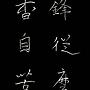 鋒從磨
香自苦